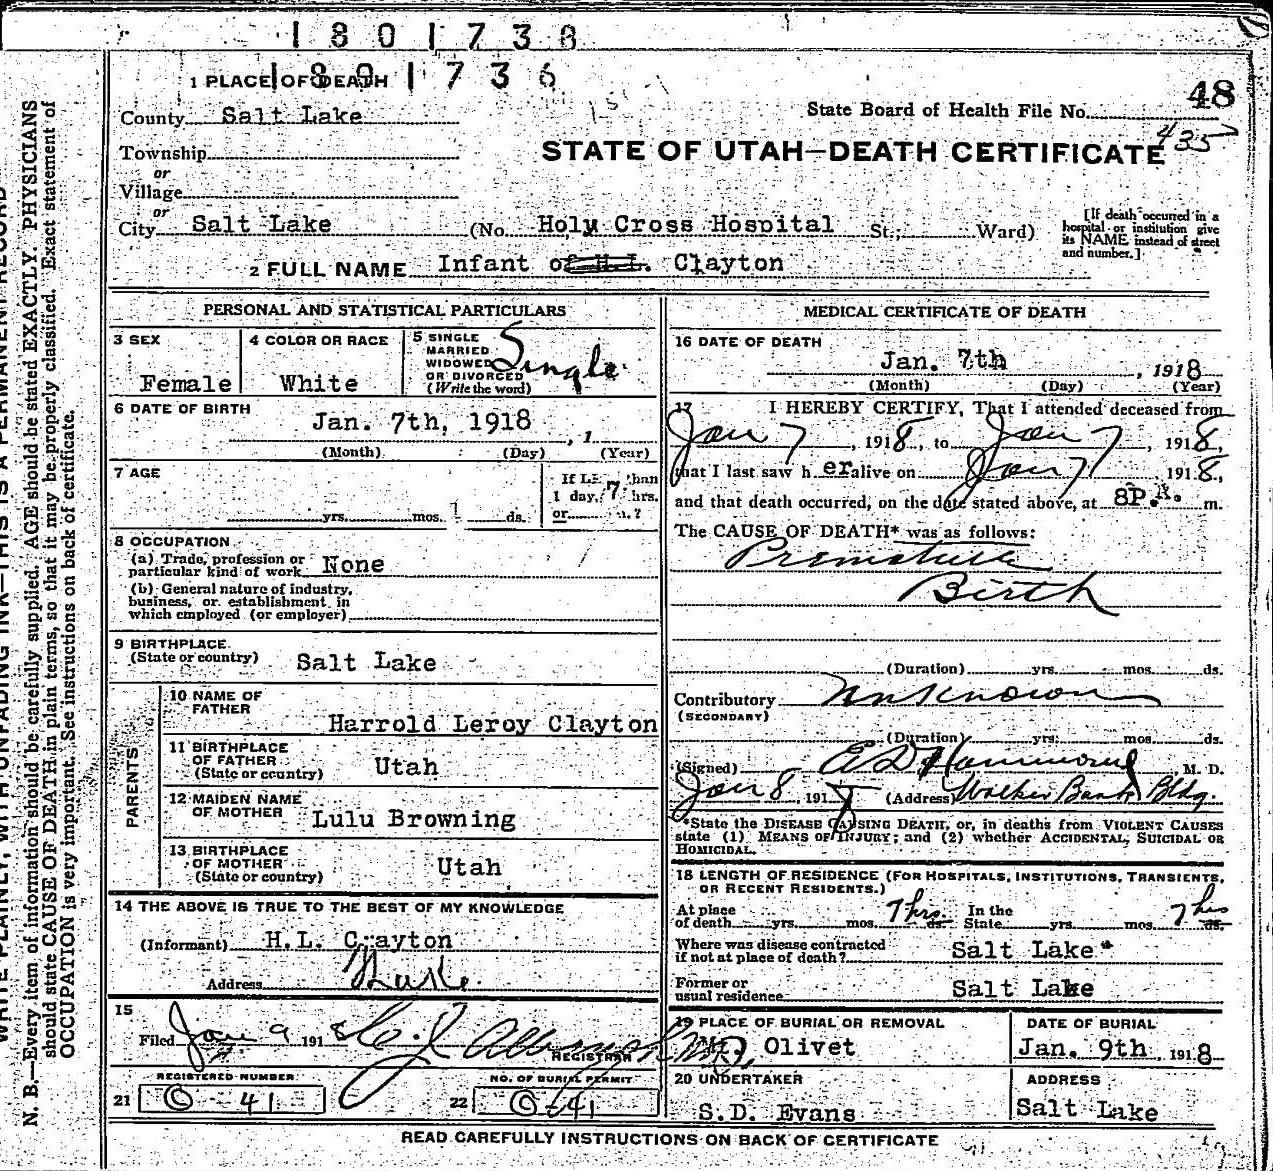 1801738
1801736
1 PLACE OF DEATH
48
County Salt Lake
State Board of Health File No.
435
Township
or
STATE OF UTAH—DEATH CERTIFICATE
Village
or
City Salt Lake (No. Holy Cross Hospital St.; Ward)
[If death occurred in a hospital or institution give its NAME instead of street and number.]
2 FULL NAME Infant of H.L. Clayton
PERSONAL AND STATISTICAL PARTICULARS
3 SEX
Female
4 COLOR OR RACE
White
5 SINGLE
MARRIED
WIDOWED
OR DIVORCED
(Write the word)
Single
6 DATE OF BIRTH
Jan. 7th, 1918 , 1
(Month) (Day) (Year)
7 AGE
yrs. mos. ds.
If LESS than
1 day, 7 hrs.
or
8 OCCUPATION
(a) Trade, profession or
particular kind of work None
(b) General nature of industry,
business, or establishment in
which employed (or employer)
9 BIRTHPLACE
(State or country) Salt Lake
PARENTS
10 NAME OF
FATHER
Harrold Leroy Clayton
11 BIRTHPLACE
OF FATHER
(State or country) Utah
12 MAIDEN NAME
OF MOTHER Lulu Browning
13 BIRTHPLACE
OF MOTHER
(State or country) Utah
14 THE ABOVE IS TRUE TO THE BEST OF MY KNOWLEDGE
(Informant) H.L. Clayton
Address
15
Filed Jan 9 1918
REGISTRAR
REGISTERED NUMBER
21 0 41
NO. OF BURIAL PERMIT
22 0-41
MEDICAL CERTIFICATE OF DEATH
16 DATE OF DEATH
Jan. 7th , 1918
(Month) (Day) (Year)
17 I HEREBY CERTIFY, That I attended deceased from
Jan 7, 1918, to Jan 7, 1918,
that I last saw her alive on Jan 7 1918,
and that death occurred, on the date stated above, at 8P. m.
The CAUSE OF DEATH* was as follows:
Premature
Birth
(Duration) yrs. mos. ds.
Contributory Unknown
(SECONDARY)
(Duration) yrs. mos. ds.
(Signed) E D Hammond M. D.
Jan 8, 1918 (Address) Walker Bank Bldg.
*State the DISEASE CAUSING DEATH, or, in deaths from VIOLENT CAUSES
state (1) MEANS OF INJURY; and (2) whether ACCIDENTAL, SUICIDAL OR
HOMICIDAL.
18 LENGTH OF RESIDENCE (FOR HOSPITALS, INSTITUTIONS, TRANSIENTS,
OR RECENT RESIDENTS.)
At place
of death yrs. mos. 7 hrs ds. In the
State yrs. mos. 7 hrs ds.
Where was disease contracted
if not at place of death? Salt Lake
Former or
usual residence Salt Lake
19 PLACE OF BURIAL OR REMOVAL
Mt. Olivet
DATE OF BURIAL
Jan. 9th , 1918
20 UNDERTAKER
S.D. Evans
ADDRESS
Salt Lake
READ CAREFULLY INSTRUCTIONS ON BACK OF CERTIFICATE
WRITE PLAINLY, WITH UNFADING INK—THIS IS A PERMANENT RECORD
N. B.—Every item of information should be carefully supplied. AGE should be stated EXACTLY. PHYSICIANS
should state CAUSE OF DEATH in plain terms, so that it may be properly classified. Exact statement of
OCCUPATION is very important. See instructions on back of certificate.